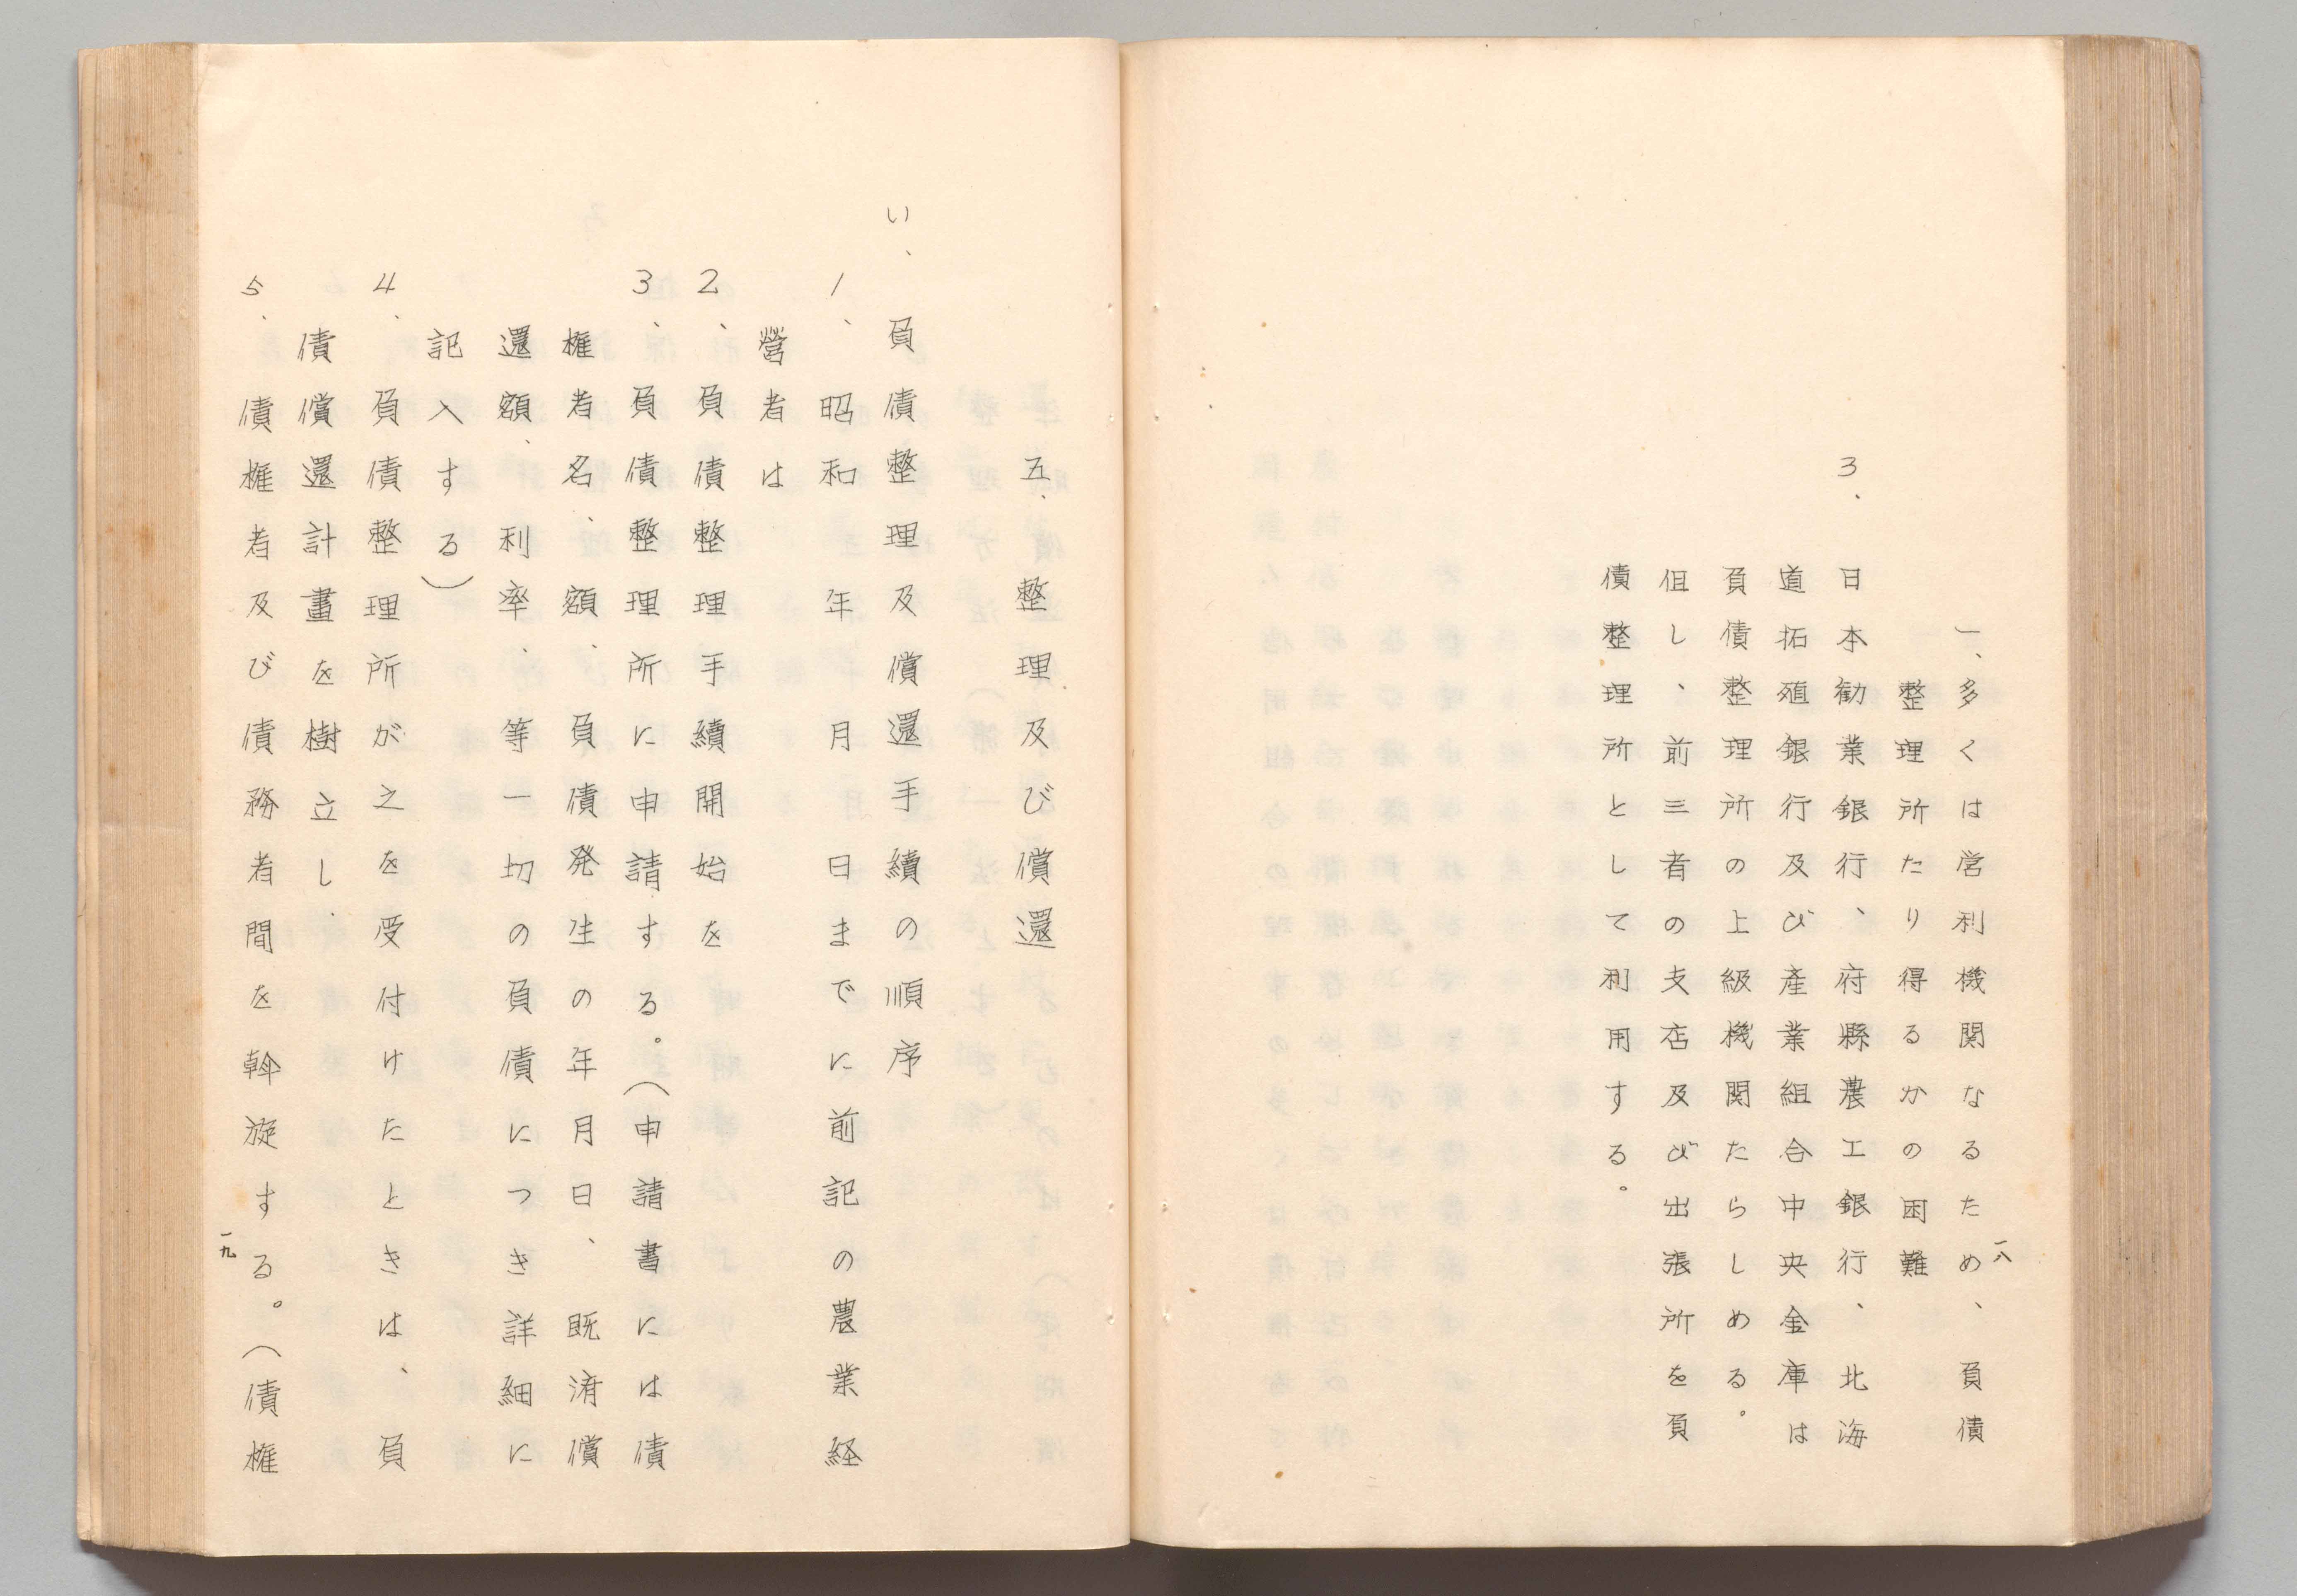 一八
一、多くは営利機関なるため、負債
整理所たり得るかの困難
3、日本勧業銀行、府縣農工銀行、北海
道拓殖銀行及び產業組合中央金庫は
負債整理所の上級機関たらしめる。
但し、前三者の支店及び出張所を負
債整理所として利用する。
五、整理及び償還
い、負債整理及償還手續の順序
1、昭和 年 月 日までに前記の農業経
營者は
2、負債整理手續開始を
3、負債整理所に申請する。（申請書には債
権者名、額、負債発生の年月日、既済償
還額、利率、等一切の負債につき詳細に
記入する）
4、負債整理所が之を受付けたときは、負
債償還計畫を樹立し、
5、債権者及び債務者間を斡旋する。（債権
一九